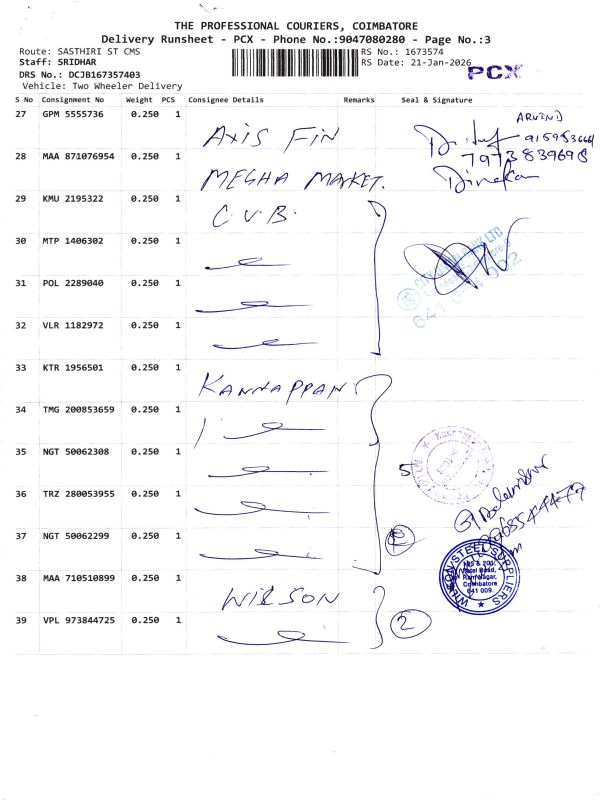 THE PROFESSIONAL COURIERS, COIMBATORE
Delivery Runsheet - PCX - Phone No.:9047080280 - Page No.:3
Route: SASTHIRI ST CMS
RS No.: 1673574
Staff: SRIDHAR
RS Date: 21-Jan-2026
PCX
DRS No.: DCJB167357403
Vehicle: Two Wheeler Delivery
S No Consignment No Weight PCS Consignee Details Remarks Seal & Signature
27 GPM 5555736 0.250 1 AXIS FIN
ARVIND
28 MAA 871076954 0.250 1 MEGHA MARKET.
7973839698
29 KMU 2195322 0.250 1 C.V.B.
30 MTP 1406302 0.250 1
31 POL 2289040 0.250 1
641 002
32 VLR 1182972 0.250 1
33 KTR 1956501 0.250 1 KANNAPPAN
34 TMG 200853659 0.250 1
35 NGT 50062308 0.250 1
5
36 TRZ 280053955 0.250 1
37 NGT 50062299 0.250 1
38 MAA 710510899 0.250 1 WILSON
WILSON STEEL SUPPLIERS
Ramnagar,
Coimbatore
641 009
39 VPL 973844725 0.250 1
2